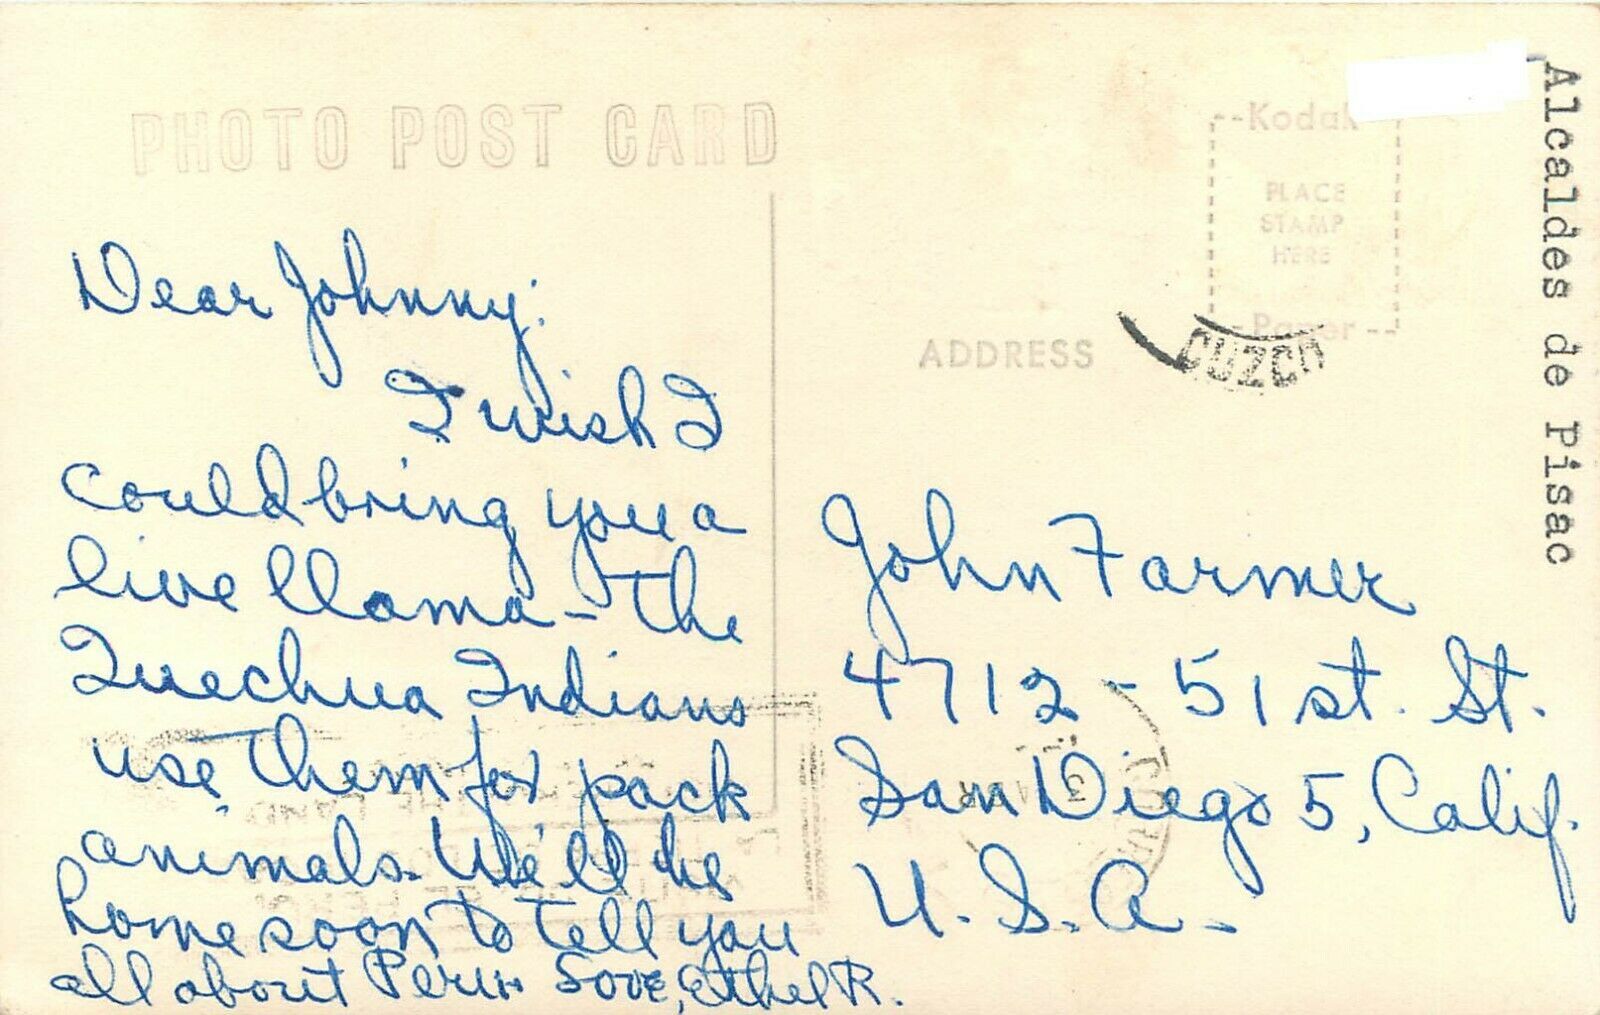 PHOTO POST CARD
Dear Johnny:
I wish I
could bring you a
live llama - the
Quechua Indians
use them for pack
animals. We'll be
home soon to tell you
all about Peru. Love, Ethel R.
Kodak
PLACE
STAMP
HERE
Paper
ADDRESS
CUZCO
John Farmer
4712 - 51st. St.
San Diego 5, Calif.
U.S.A.
Alcaldes de Pisac